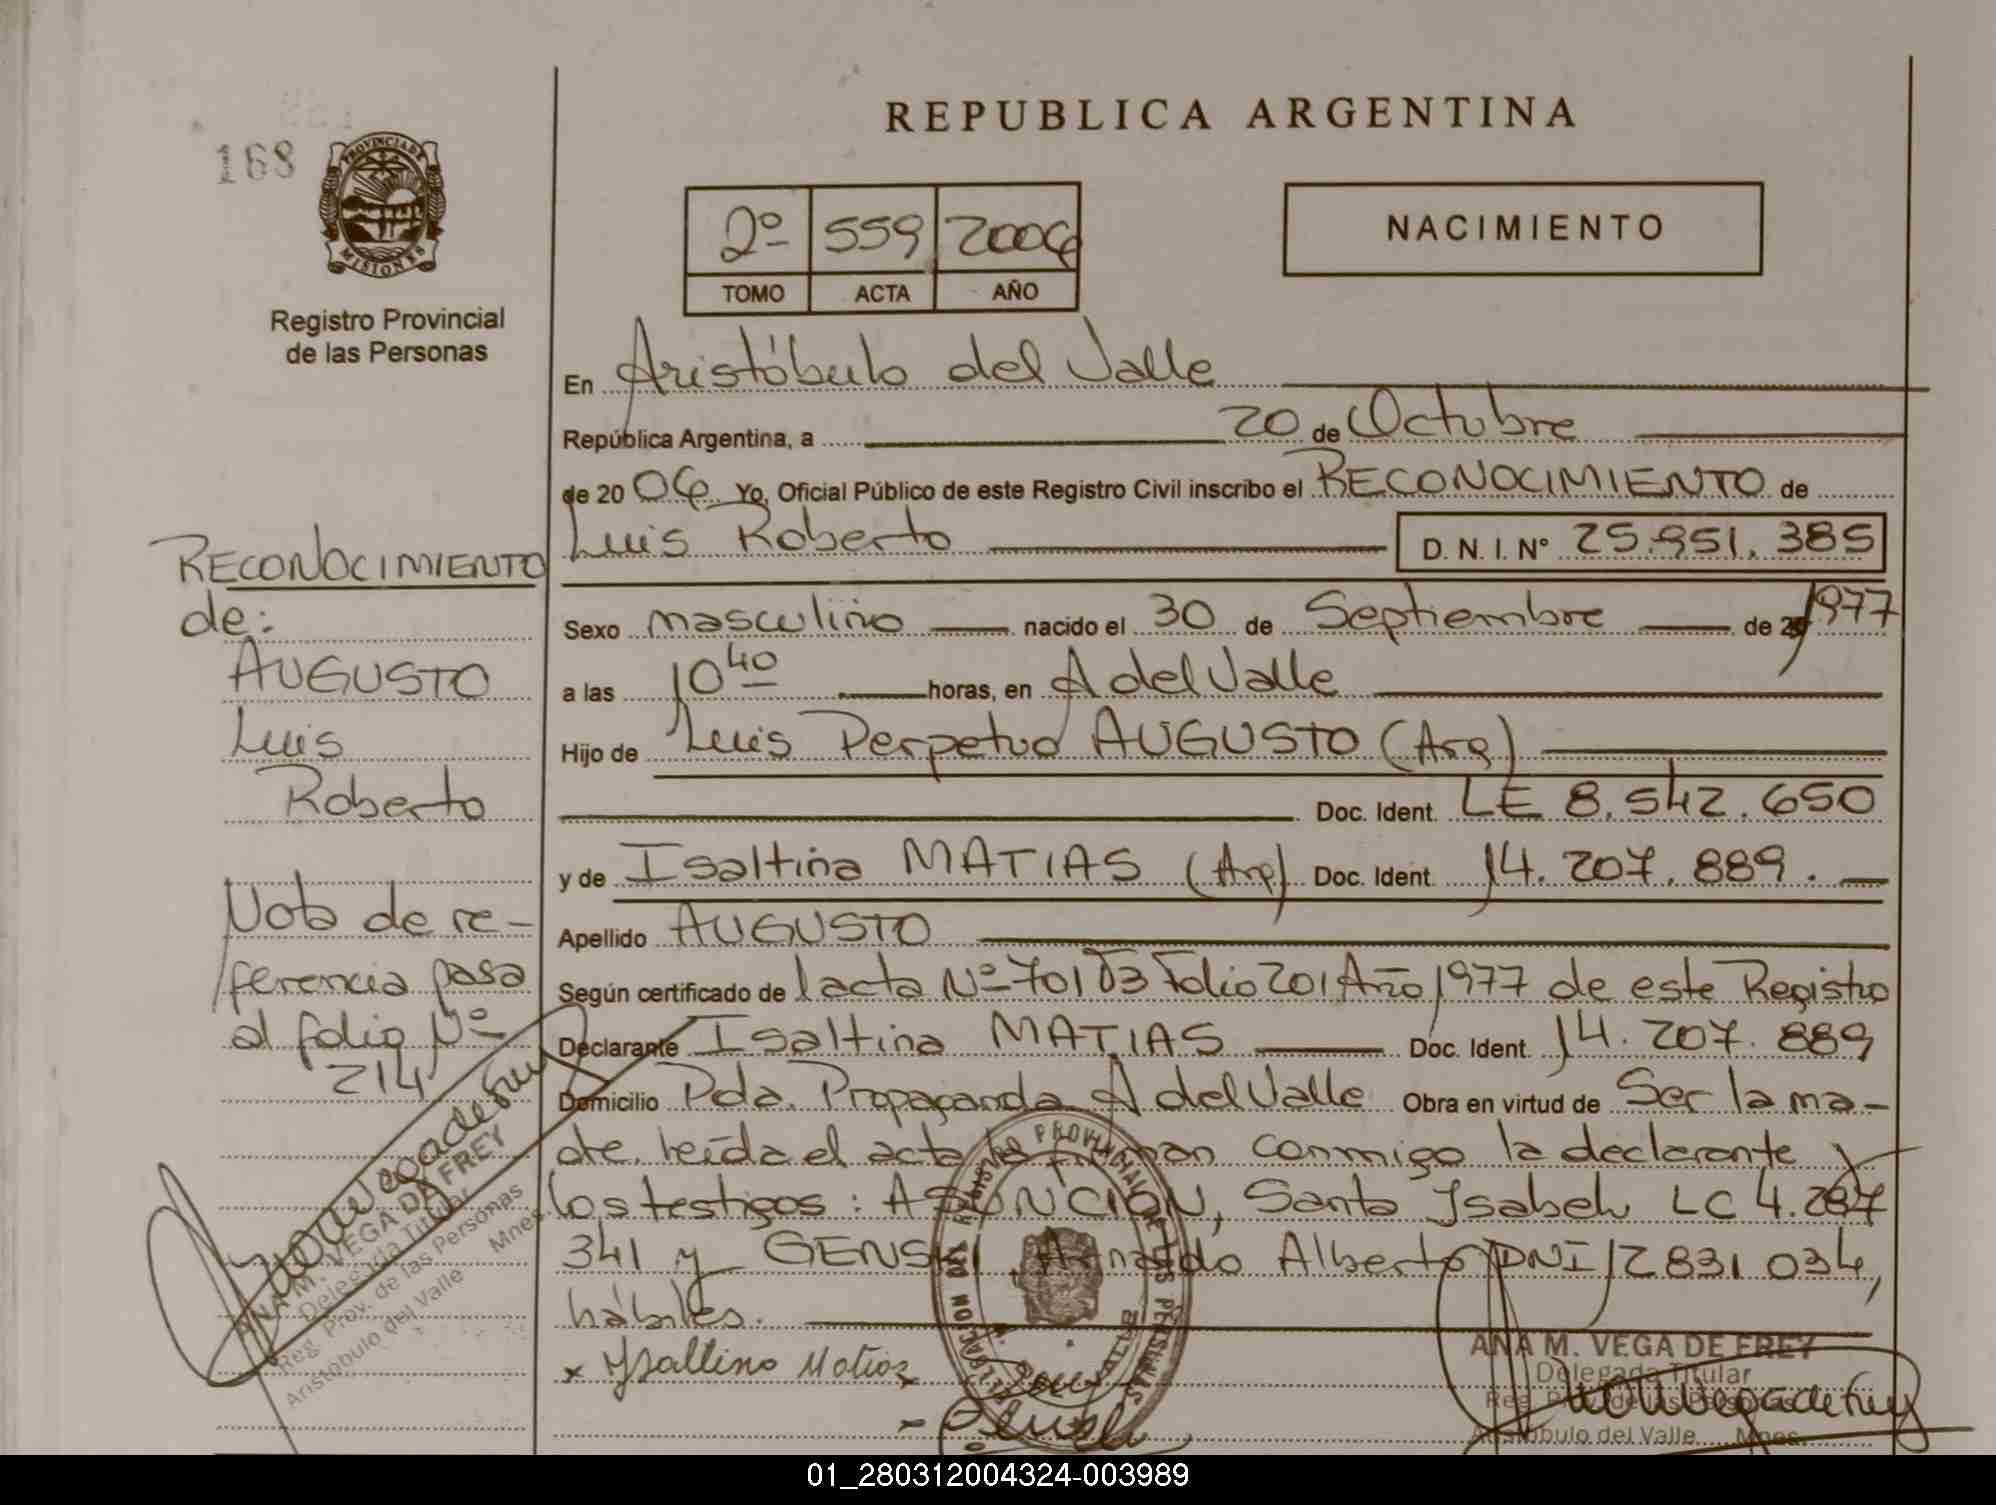 REPUBLICA ARGENTINA
168
PROVINCIA DE
MISIONES
Registro Provincial
de las Personas
2º 559 2006
TOMO ACTA AÑO
NACIMIENTO
En Aristóbulo del Valle
República Argentina, a 20 de Octubre
de 20 06 Yo, Oficial Público de este Registro Civil inscribo el RECONOCIMIENTO de
Luis Roberto D. N. I. Nº 25.951.385
Sexo masculino nacido el 30 de Septiembre de 1977
a las 10 40 horas, en A del Valle
Hijo de Luis Perpetuo AUGUSTO (Arg)
Doc. Ident. LE 8.542.650
y de Isaltina MATIAS (Arg) Doc. Ident. 14.207.889.
Apellido AUGUSTO
Según certificado de 1 acta Nº 701 T3 Folio 201 Año 1977 de este Registro
Declarante Isaltina MATIAS Doc. Ident. 14.207.889
Domicilio Pda. Propaganda A del Valle Obra en virtud de Ser la ma-
dre. leída el acta la firman conmigo la declarante y
los testigos: ASUNCION, Santa Isabel LC 4.287
341 y GENSKI, Arnaldo Alberto DNI 12831034,
hábiles.
x Ysaltino Matias
ANA M. VEGA DE FREY
Delegada Titular
Reg. Prov. de las Personas
Aristóbulo del Valle Mnes.
RECONOCIMIENTO
de:
AUGUSTO
Luis
Roberto
Nota de re-
ferencia pasa
al folio Nº
214
ANA M. VEGA DE FREY
Delegada Titular
Reg. Prov. de las Personas
Aristóbulo del Valle Mnes.
REGISTRO PROVINCIAL DE LAS PERSONAS
DELEGACION
01_280312004324-003989